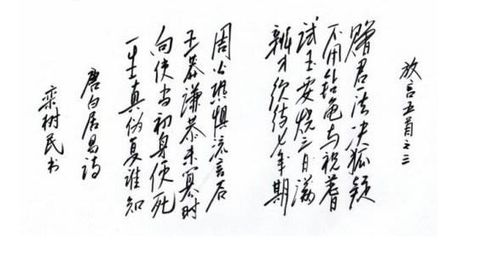 放言五首之三
赠君一法决狐疑
不用钻龟与祝蓍
试玉要烧三日满
辨才须待七年期
周公恐惧流言后
王莽谦恭未篡时
向使当初身便死
一生真伪复谁知
唐白居易诗
栾树民书